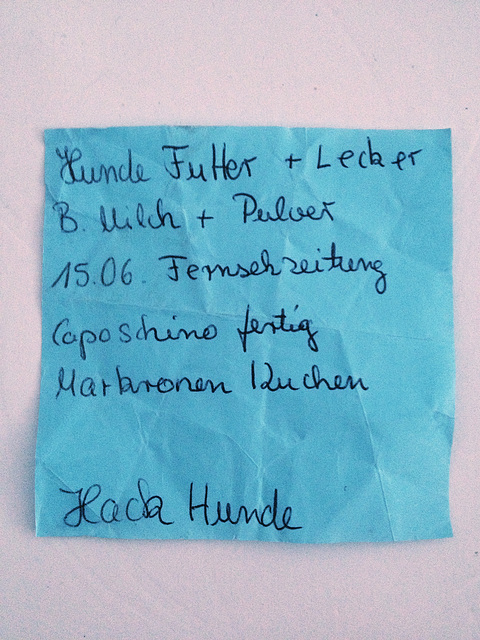 Hunde Futter + Lecker
B. Milch + Pulver
15.06. Fernsehzeitung
Caposchino fertig
Markronen Kuchen
Hack Hunde